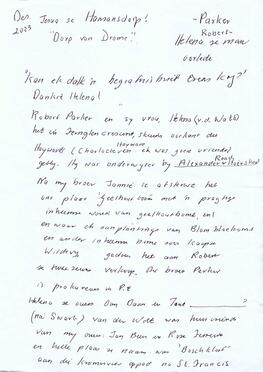 Des. 2023
Jonva se Hamansdorp!
"Dorp van Drome"
- Parker
Robert -
Helena se man
oorlede
'kan ek dalk 'n begrafnisbrief Evens kry?'
Dankie Helena!
Robert Parker en sy vrou, Helena (v.d. Watt)
het in Jernglen crescent, skuins oorkant die
Heyward (Charlotte en ek was goeie vriende)
Heyward
gebly. Hy was onderwyser by Alexander Road Hoërskool
Na my broer Jannie se afsterwe het
ons plaas 'geelhoutboom met 'n pragtige
inheemse woud van geelhoutbome, ens
en waar ek aanplantings van Blom Blackwood
en ander inheemse bome soos Kaapse
Wildevy, gedoen het aan Robert
se twee seuns verkoop. Die broer Parker
is prokureurs in P.E
Helena se ouers Oom Daan en Tant ?
(nai Swarts) van der Watt was huisvriende
van my ouers. Jan Ben en Rose Ferreira
en hulle plaas se naam was 'Boschkloof'
aan die Kromrivier oppad na St. Francis